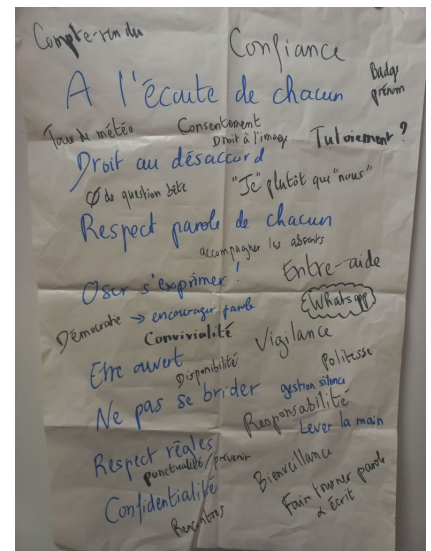 Compte-rendu
Confiance
A l'écoute de chacun
Badge
prénom
Tour de météo
Consentement
Droit à l'image
Tutoiement ?
Droit au désaccord
Ø de question bête
"Je" plutôt que "nous"
Respect parole de chacun
accompagner les absents
Entre-aide
Oser s'exprimer !
WhatsApp
Démocratie → encourager parole
Convivialité
Vigilance
Etre ouvert
Disponibilité
Politesse
Ne pas se brider
gestion silence
Responsabilité
Lever la main
Respect règles
ponctualité / prévenir
Bienveillance
Confidentialité
Faire tourner parole
& écrit
Rencontres